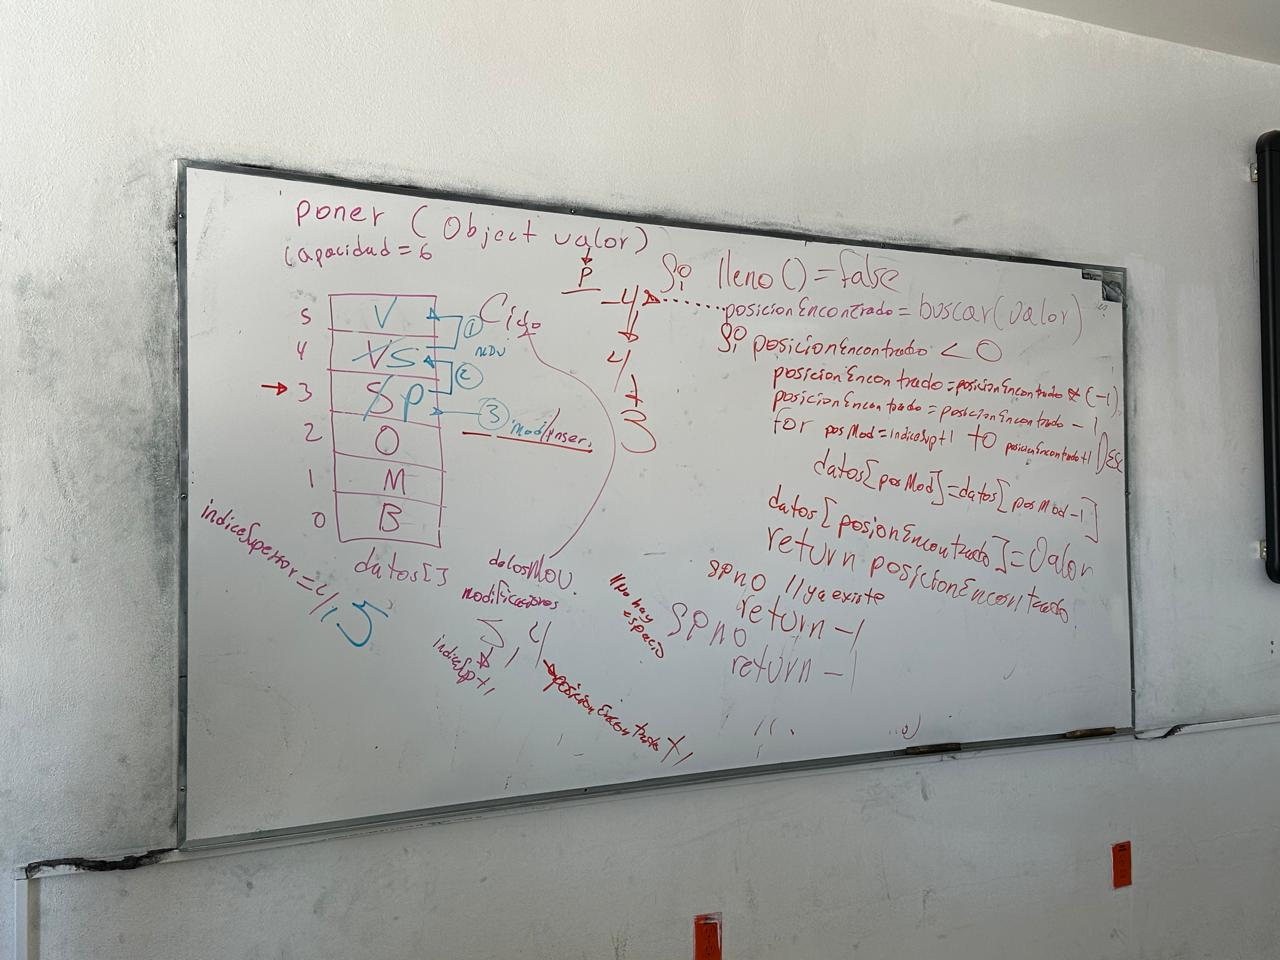 poner (Object valor)
capacidad = 6
P
5 V
4 V S
3 S P
2 O
1 M
0 B
datos[]
indiceSuperior = 4, 5
Ciclo
1
2
3 mod/inser.
-4
4
3
datosMov.
modificadores
5, 4
indiceSup+1
posicionEncontrado+1
Si lleno() = false
posicionEncontrado = buscar(valor)
Si posicionEncontrado < 0
posicionEncontrado = posicionEncontrado * (-1)
posicionEncontrado = posicionEncontrado - 1
for posMod = indiceSup+1 to posicionEncontrado+1 Desc
datos[posMod] = datos[posMod-1]
datos[posionEncontrado] = Valor
return posicionEncontrado
sino //ya existe
return -1
//No hay espacio
sino
return -1